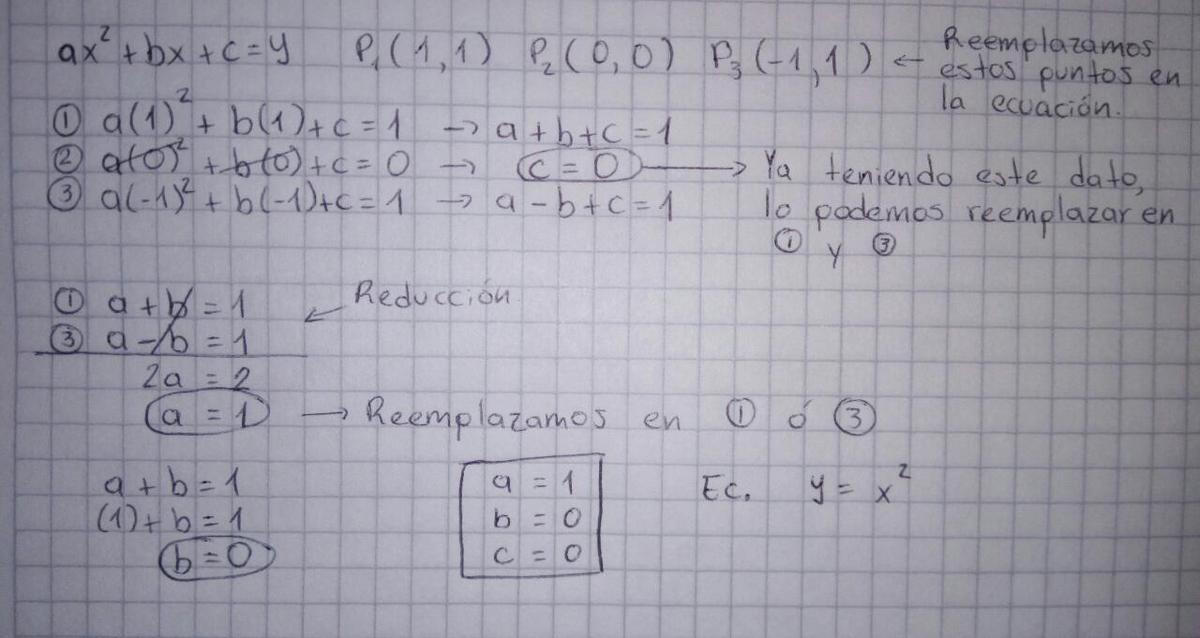 ax² + bx + c = y P₁(1,1) P₂(0,0) P₃(-1,1) ← Reemplazamos
estos puntos en
la ecuación.
① a(1)² + b(1) + c = 1 → a + b + c = 1
② a(0)² + b(0) + c = 0 → c = 0 → Ya teniendo este dato,
③ a(-1)² + b(-1) + c = 1 → a - b + c = 1 lo podemos reemplazar en
① y ③
① a + b = 1 ← Reducción
③ a - b = 1
2a = 2
a = 1 → Reemplazamos en ① ó ③
a + b = 1
(1) + b = 1
b = 0
a = 1
b = 0
c = 0
Ec. y = x²